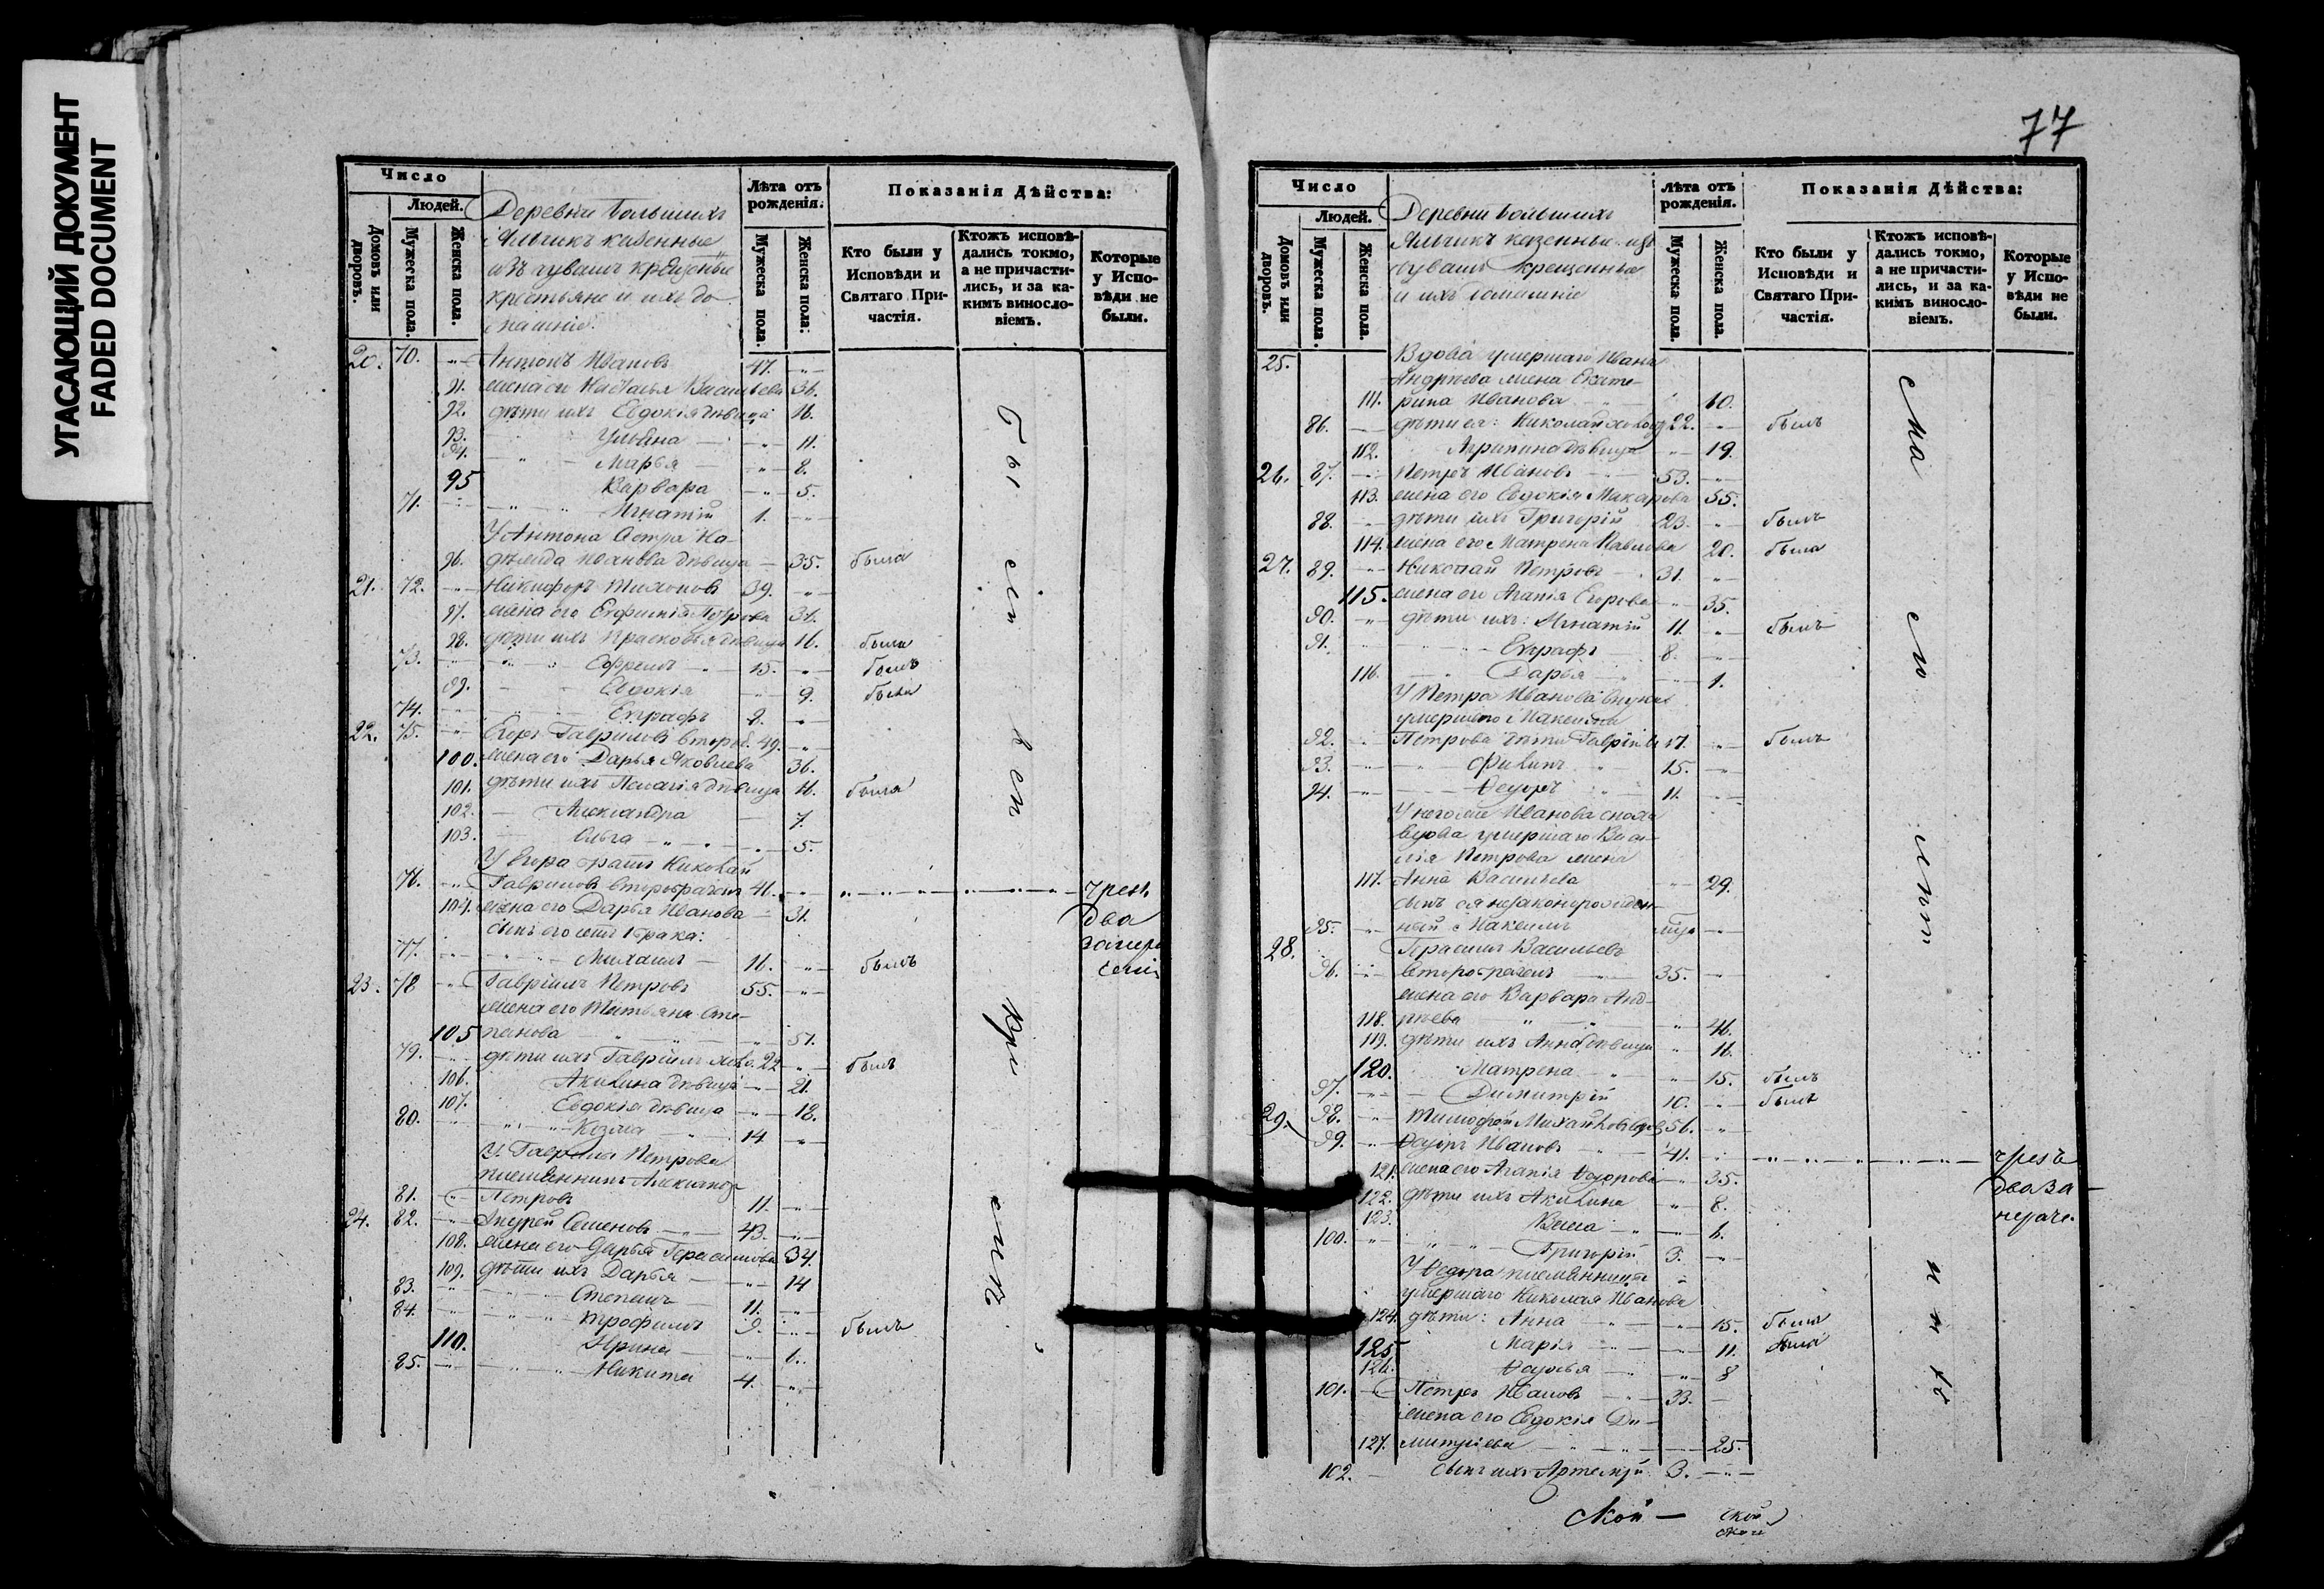 УГАСАЮЩИЙ ДОКУМЕНТ
FADED DOCUMENT
77
Число
Людей.
Домовъ или дворовъ.
Мужеска пола.
Женска пола.
Деревни Большихъ
Яльчикъ казенные
изъ чувашъ крещеные
крестьяне и ихъ до-
машніе.
Лѣта отъ рожденія:
Мужеска пола.
Женска пола:
Показанія Дѣйства:
Кто были у Исповѣди и Святаго Причастія.
Ктожъ исповѣдались токмо, а не причастились, и за какимъ винословіемъ.
Которые у Исповѣди не были.
20. 70. Антонъ Ивановъ 47.
91. жена его Наталья Васильева 36.
92. дѣти ихъ Евдокія дѣвица 16.
93. Ульяна 11.
94. Марья 8.
95 Варвара 5.
71. Игнатій 1.
У Антона сестра На-
96. дѣжда Иванова дѣвица 35. была
21. 72. Никифоръ Тихоновъ 39.
97. жена его Евфимія Петрова 36.
98. дѣти ихъ Прасковья дѣвица 16. была
73. Ефремъ 15. былъ
99. Евдокія 9. была
74. Евграфъ 2.
22. 75. Егоръ Гавриловъ второб. 49.
100. жена его Дарья Яковлева 36.
101. дѣти ихъ Пелагія дѣвица 16. была
102. Александра 7.
103. Ольга 5.
У Егора братъ Николай
76. Гавриловъ второбраченъ 41. чрезъ
104. жена его Дарья Иванова 31. два
сынъ его отъ 1 брака:
77. Михаилъ 16. былъ
23. 78 Гавріилъ Петровъ 55.
жена его Татьяна Сте-
105 панова 51.
79. дѣти ихъ Гавріилъ холо. 22 былъ
106. Акилина дѣвица 21.
107. Евдокія дѣвица 18.
80. Козма 14
У Гаврила Петрова
племянникъ Александр
81. Петровъ 11.
24. 82. Андрей Семеновъ 43.
108. жена его Дарья Герасимова 34.
109. дѣти ихъ Дарья 14
83. Степанъ 11.
84. Трофимъ 9. былъ
110. Ирина 6.
85. Никита 4.
Число
Людей.
Домовъ или дворовъ.
Мужеска пола.
Женска пола.
Деревни Большихъ
Яльчикъ казенные изъ
чувашъ крещенные
и ихъ домашніе
лѣта отъ рожденія.
Мужеска пола.
Женска пола.
Показанія Дѣйства:
Кто были у Исповѣди и Святаго Причастія.
Ктожъ исповѣдались токмо, а не причастились, и за какимъ винословіемъ.
Которые у Исповѣди не были.
25. Вдова умершаго Ивана
Андреева жена Екате-
111. рина Иванова 60.
86. дѣти ея: Николай холос 22. былъ
112. Агрипина дѣвица 19.
26. 87. Петръ Ивановъ 53.
113. жена его Евдокія Макарова 55.
88. дѣти ихъ Григорій 23. былъ
114. жена его Матрена Павлова 20. была
27. 89. Николай Петровъ 31.
115. жена его Агапія Егорова 35.
90. дѣти ихъ: Игнатій 11. былъ
91. Евграфъ 8.
116. Дарья 1.
У Петра Иванова внуки
умершаго Максима
92. Петрова дѣти Гавріилъ 17. былъ
93. Филипъ 15.
94. Ѳедоръ 11.
У него же Иванова сноха
вдова умершаго Васи-
лія Петрова жена
117. Анна Васильева 29.
сынъ ея незаконорожден-
95. ный Максимъ
28. Герасимъ Васильевъ
96. второбраченъ 35.
жена его Варвара Анд-
118. реева 46.
119. дѣти ихъ Анна дѣвица 16.
120. Матрена 15. былъ
97. Димитрій 10. былъ
29. 98. Тимофей Михайловъ вдов 56.
99. Ѳедоръ Ивановъ 41. чрезъ
121. жена его Агапія Ѳедорова 35. два за
122. дѣти ихъ Акилина 8. нераче.
123. Васса 6.
100. Григорій 3.
У Ѳедора племянницы
умершаго Николая Иванова
124. дѣти: Анна 15. была
125 Марія 11. была
126. Ѳедосья 8
101. Петръ Ивановъ 33.
жена его Евдокія Ди-
127. митріева 25.
102. сынъ ихъ Артемій 3.
ской —